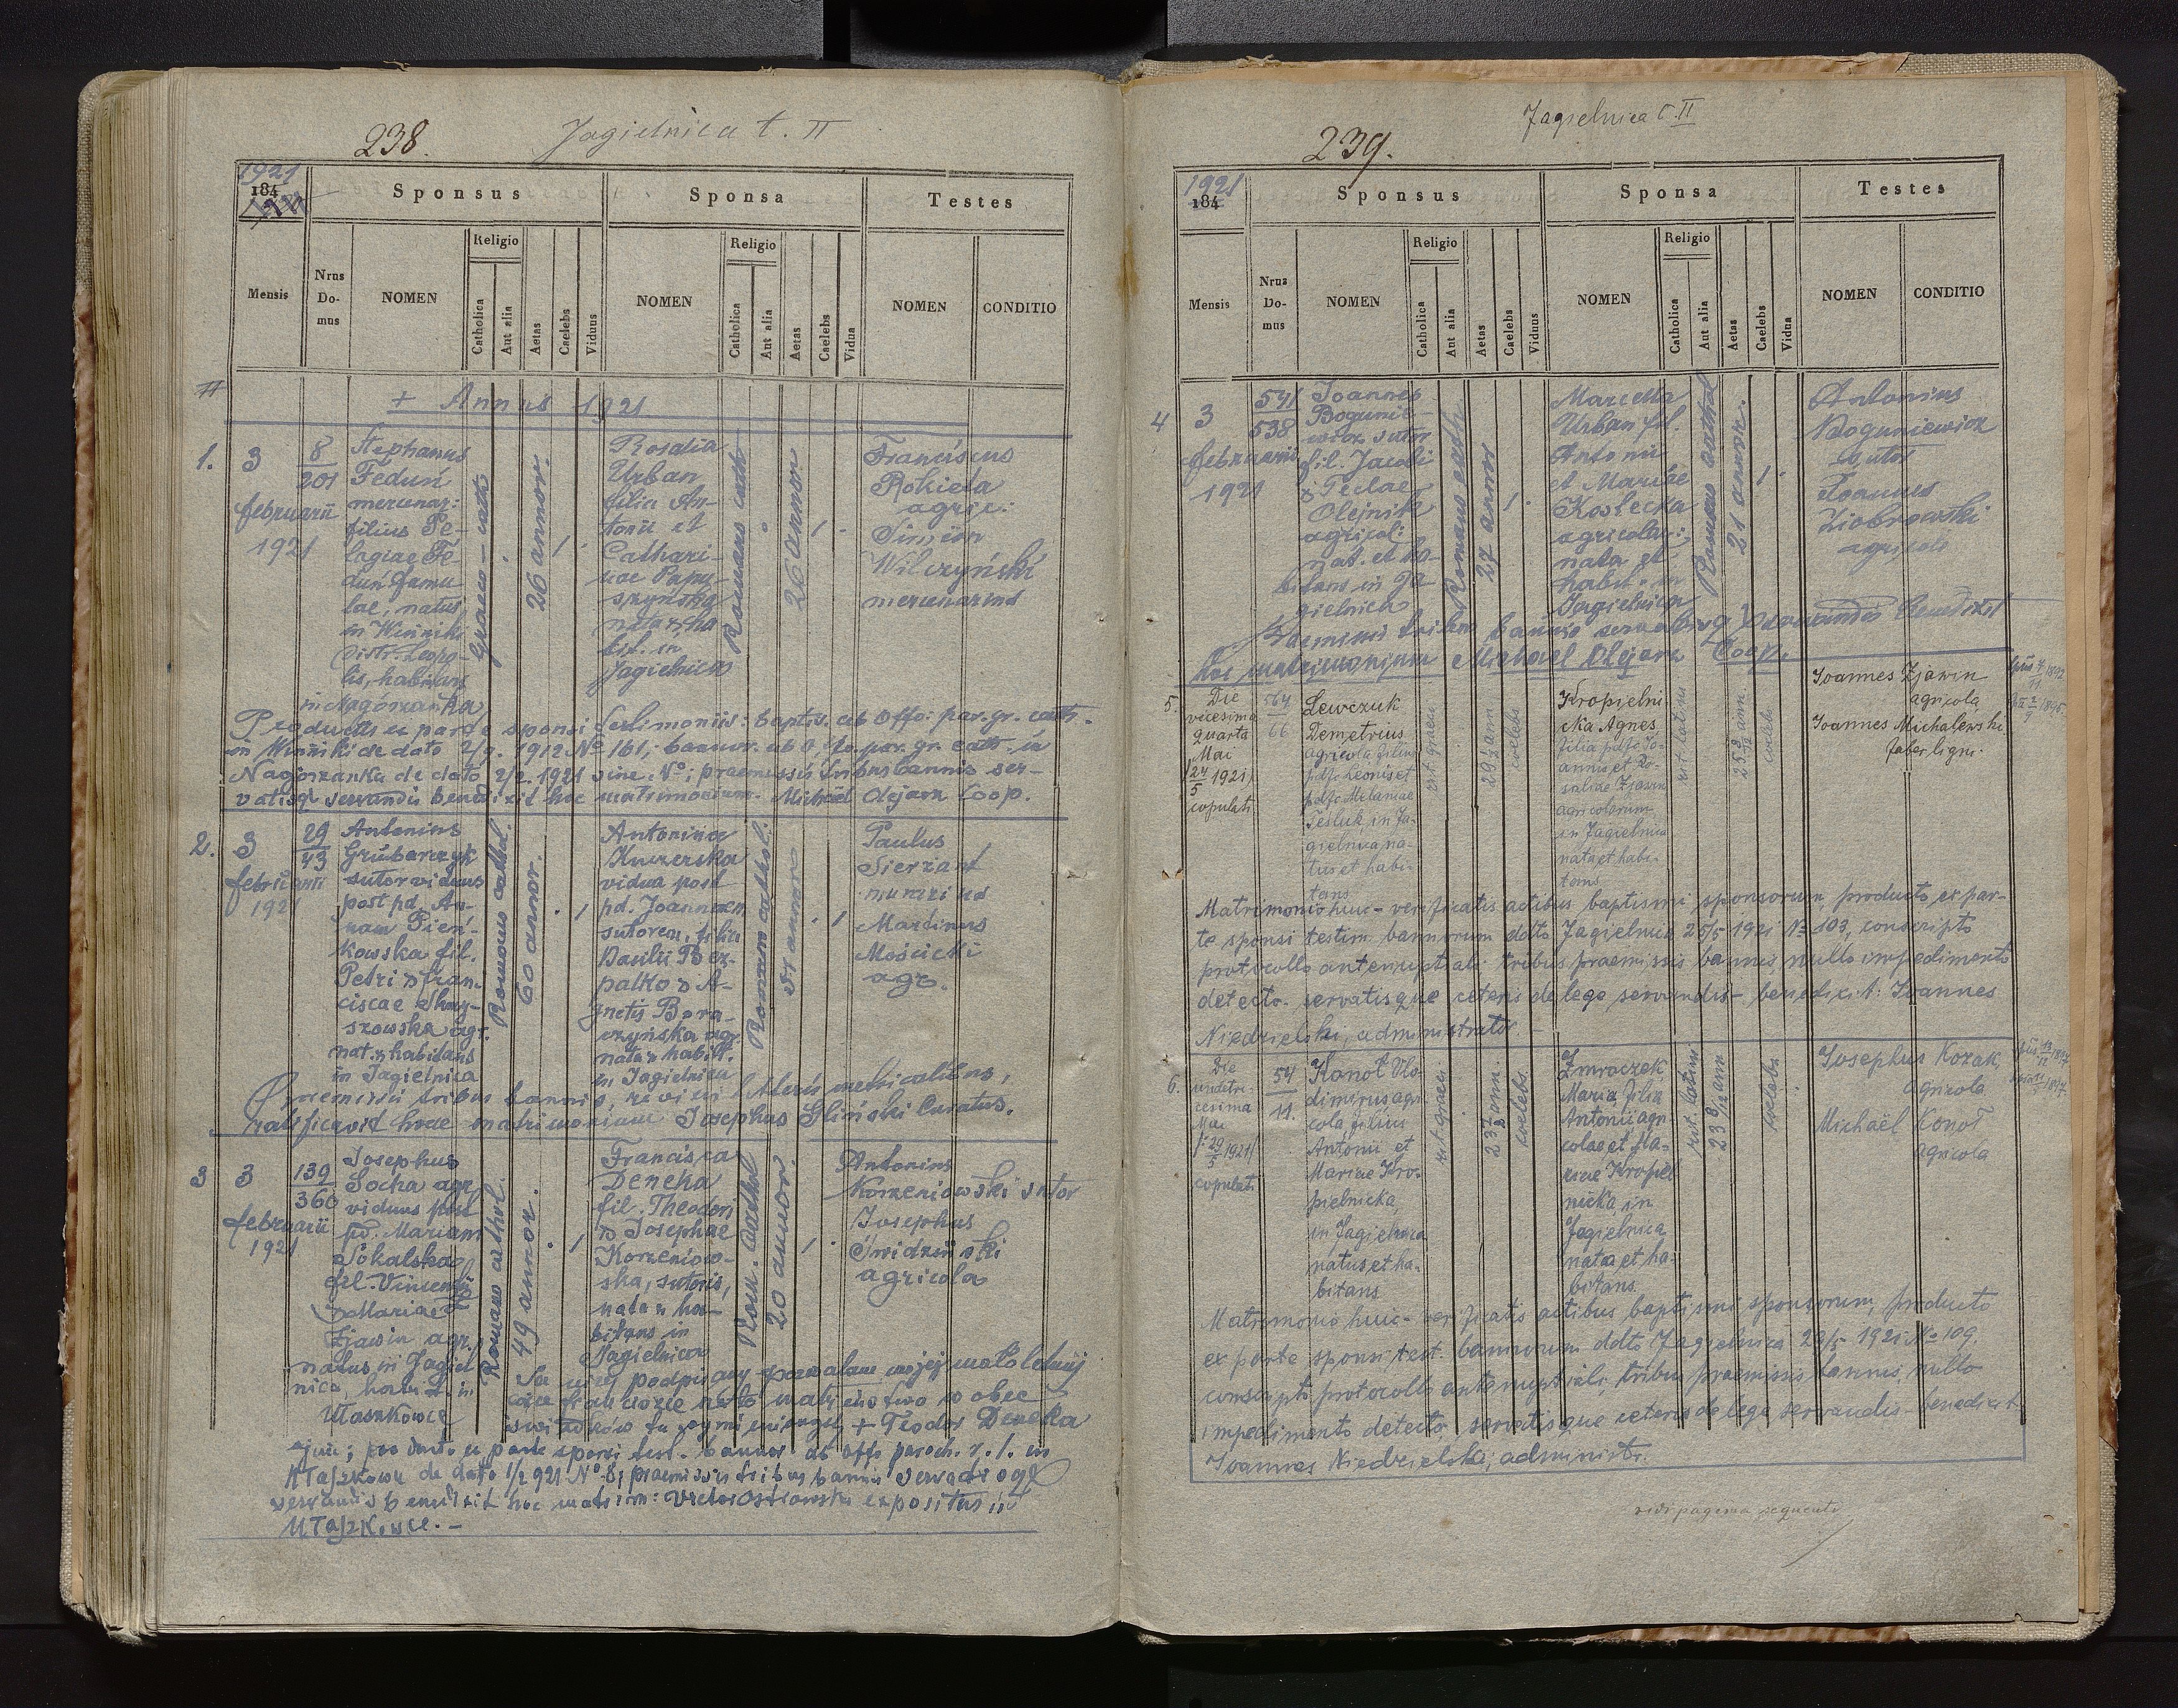 238.
Jagielnica t. II
1921
184
Sponsus
Sponsa
Testes
Mensis
Nrus Do-mus
NOMEN
Religio
Catholica
Aut alia
Aetas
Caelebs
Viduus
NOMEN
Religio
Catholica
Aut alia
Aetas
Caelebs
Vidua
NOMEN
CONDITIO
+ Annus 1921
1.
3
februarii
1921
8
201
Stephanus
Feduń
mercenar:
filius Pe-
lagiae Fe-
duń famu-
lae, natus
in Winniki
distr. Leopo-
lis, habitans
in Nagórzanka
Graeco-cath
26 annor.
1
Rosalia
Urban
filia An-
tonii et
Cathari-
nae Papu-
szyńska
nata & ha
bit. in
Jagielnica
Romano cath
26 annor
1
Franciscus
Rokieta
agric:
Simeon
Wilczyński
mercenarius
Productis ex parte sponsi testimoniis: baptis. ab offo: par. gr. cath.
in Winniki de dato 2/9. 1912 No 161, bannor. ab offo. par. gr. cath. in
Nagórzanka de dato 2/2. 1921 sine No; praemissis tribus bannis ser-
vatisq servandis benedixit hoc matrimonium. Michael Olejarz Coop.
2.
3
februarii
1921
29
43
Antonius
Grubarczyk
sutor viduus
post pd. An-
nam Pień-
kowska fil.
Petri & Fran-
ciscae
szowska agr.
nat. & habitans
in Jagielnica
Romano cathol.
60 annor.
1
Antonina
Kuczerska
vidua post
pd. Joannem
sutorem, filia
Paulii
palko & A-
gnetis Bora-
czyńska agr.
nata & habit.
in Jagielnica
Romano cathol.
51 annor
1
Paulus
Sierzant
Martinus
Mościcki
agr.
Praemissis tribus bannis, revisis litteris metricalibus,
ratificavit hocce matrimonium Josephus Gliński Curatus.
3
3
februarii
1921
139
360
Josephus
Socha agr.
viduus post
pd. Mariam
Sokalska
fil. Vincentii
& Mariae
Zjawin agr.
natus in Jagiel
nica, habit. in
Ułaszkowce
Romano cathol.
49 annor.
1
Francisca
Deneka
fil. Theodori
& Josephae
Korzeniow-
ska, sutoris,
nata & ha-
bitans in
Jagielnica
Rom. cathol
20 annor.
1
Antonius
Korzeniowski sutor
Josephus
Świdziński
agricola
podpisany pozwalam mojej małoletniej
córce Franciszce na to małżeństwo w obec
świadków tu wymienionych + Teodor Deneka
ejus; producto ex parte sponsi test. bannor ab offo paroch. r. l. in
Ułaszkowce de dato 1/2 921 No 8; praemissis tribus bannis servatisq
servandis benedixit hoc matrim: Victor Ostrowski expositus in
Ułaszkowce. —
239.
Jagielnica t. II
1921
184
Sponsus
Sponsa
Testes
Mensis
Nrus Do-mus
NOMEN
Religio
Catholica
Aut alia
Aetas
Caelebs
Viduus
NOMEN
Religio
Catholica
Aut alia
Aetas
Caelebs
Vidua
NOMEN
CONDITIO
4
3
februarii
1921
541
538
Joannes
Bogunie-
wicz sutor
fil. Jacobi
& Teclae
Olejnik
agricol:
nat. et ha-
bitans in Ja
gielnica
Romano cath
27 annor
1
Marcella
Urban fil.
Antonii
et Mariae
Kostecka
agricolar:
nata et
habit. in
Jagielnica
Romano cathol
21 annor.
1
Antonius
Boguniewicz
sutor
Joannes
Ziobrowski
agricola
Praemissis tribus bannis servatisq servandis benedixit
hoc matrimonium Michael Olejarz Coop.
5.
Die
vicesima
quarta
Mai
24/5 1921
copulati
564
66
Lewczuk
Demetrius
agricola filius
pdfi Leonis et
pdfe Melaniae
Seśluk, in Ja-
gielnica na-
tus et habi-
tans
rit. graeci
29 1/2 ann
caelebs
Kropielni-
cka Agnes
filia pdfi Jo-
annis et Ro-
saliae Zjawin
agricolarum
in Jagielnica
nata et habi-
tans
rit. latini
25 8/12 ann
caelebs
Joannes Zjawin
agricola
Joannes Michalewski
faber lign.
Matrimonio huic — verificatis actibus baptismi sponsorum, producto ex par-
te sponsi testim. bannorum ddto Jagielnica 25/5 1921 No 103, conscripto
protocollo antenuptiali tribus praemissis bannis, nullo impedimento
detecto — servatisque ceteris de lege servandis — benedixit: Joannes
Niedzielski, administrator —
6.
Die
undetri-
cesima
Mai
29/5 1921
copulati
54
11.
Konot Vlo-
dimirus agri
cola filius
Antonii et
Mariae Kro-
pielnicka,
in Jagielnica
natus et ha-
bitans
rit. graeci
caelebs
Zmroczek
Maria filia
Antonii agri
colae et Ma-
riae Kropiel
nicka, in
Jagielnica
nata et ha-
bitans.
rit. latini
caelebs
Josephus Kozak,
agricola
Michaël Konot
agricola
Matrimonio huic — verificatis actibus baptismi sponsorum, producto
ex parte sponsi test. bannorum ddto Jagielnica 29/5 1921 No 109,
conscripto protocollo antenuptiali, tribus praemissis bannis, nullo
impedimento detecto, servatisque ceteris de lege servandis — benedixit
Joannes Niedzielski, administr.
vidi pagina sequenti